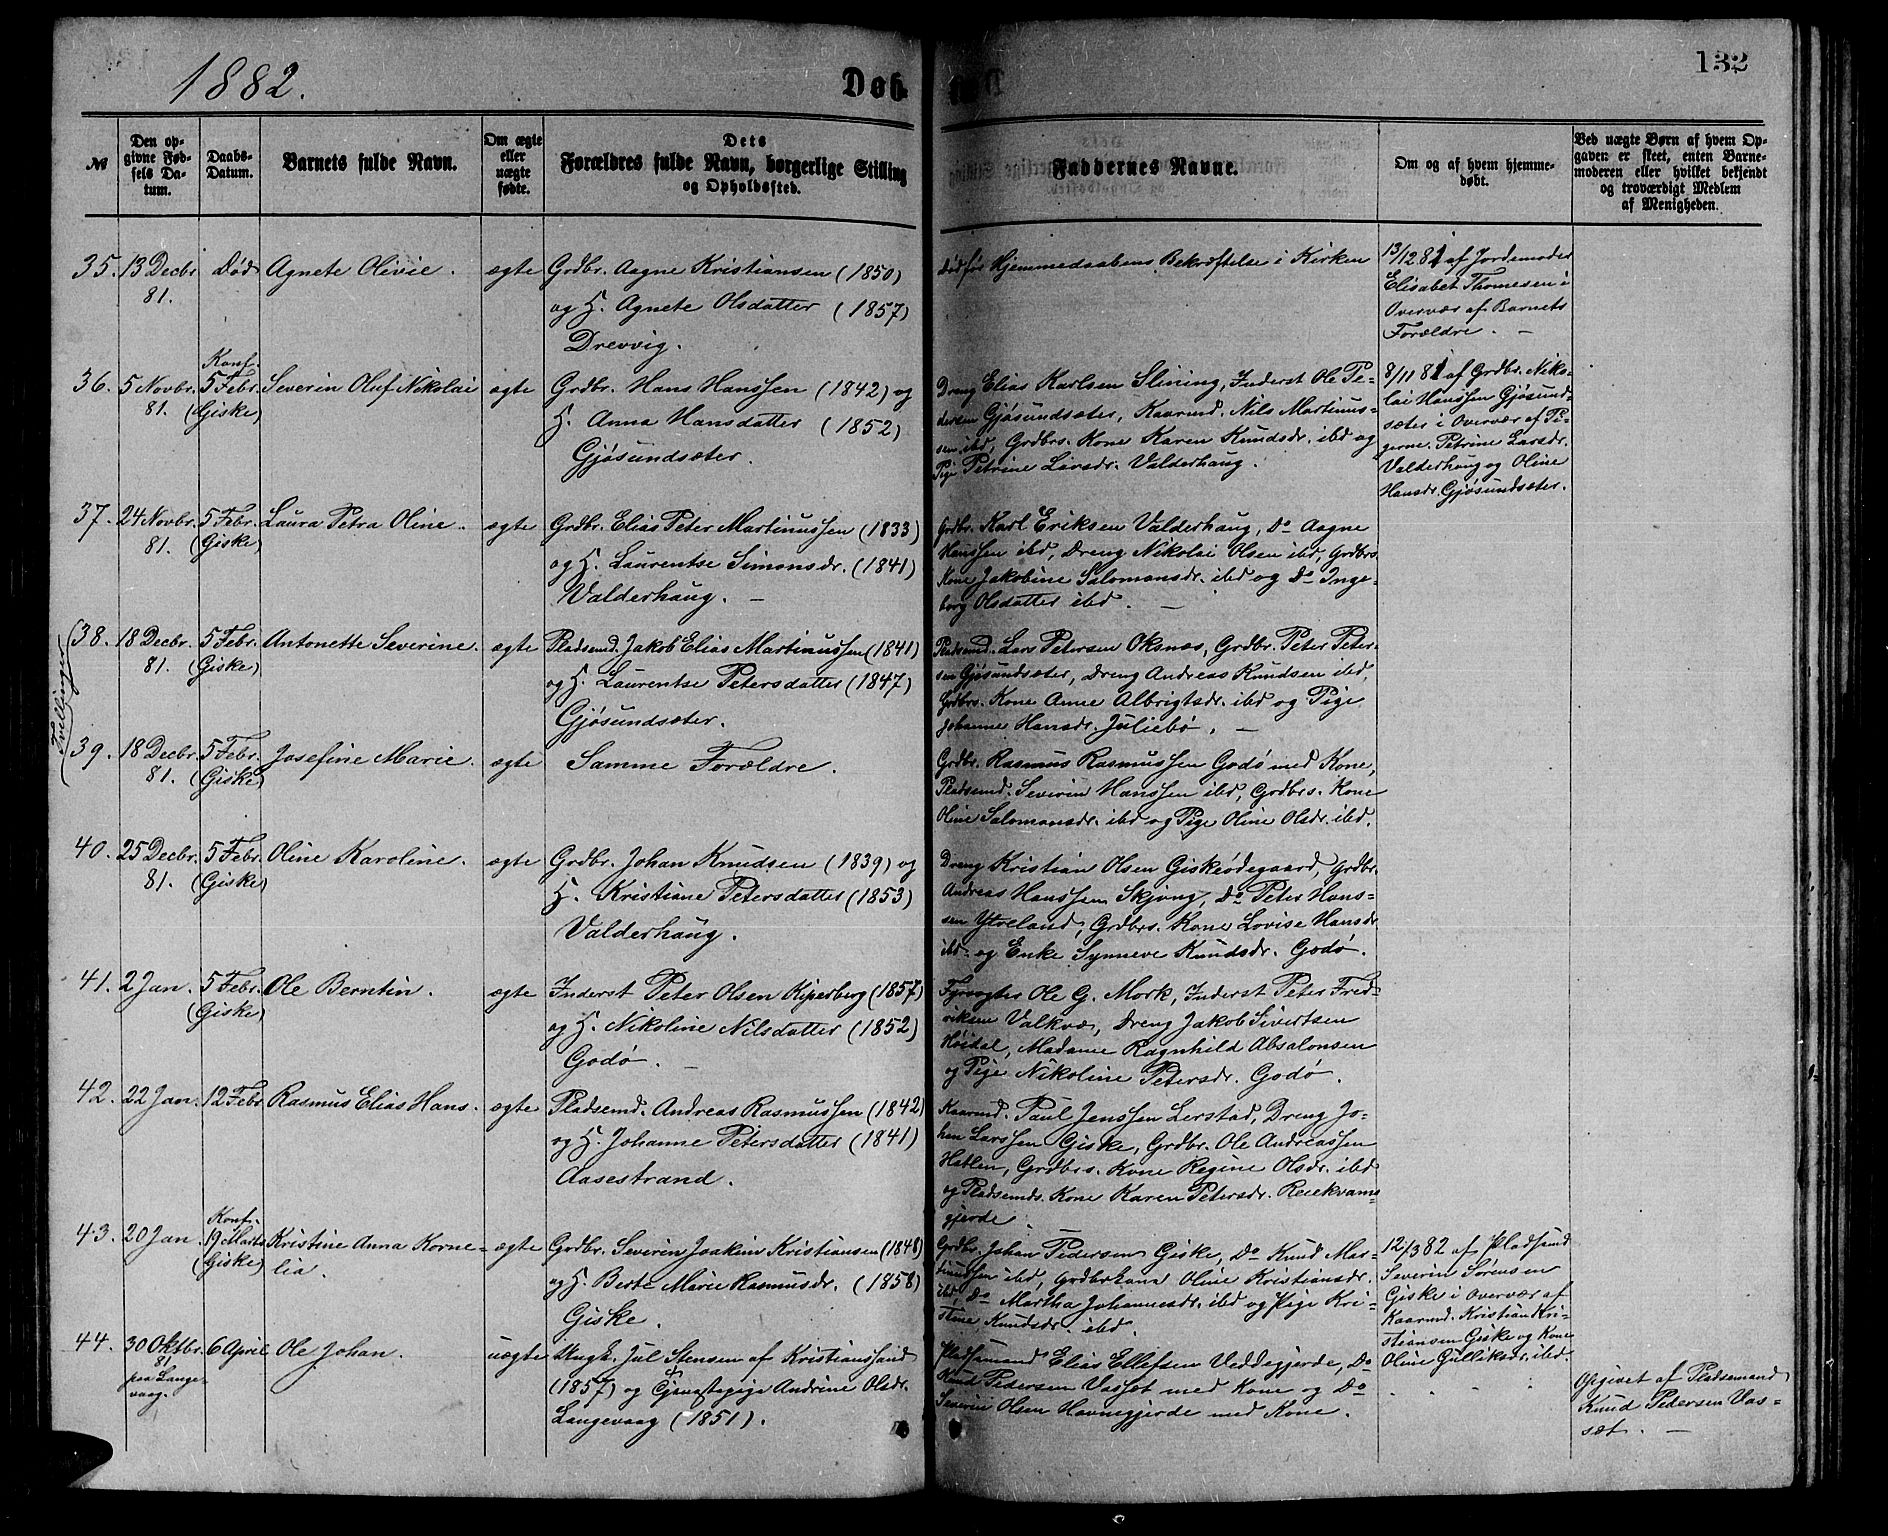 1882.
Døb
132
№
Den opgivne Fødsels Datum.
Daabs-Datum.
Barnets fulde Navn.
Om ægte eller uægte fødte.
Dets Forældres fulde Navn, borgerlige Stilling og Opholdssted.
Faddernes Navne.
Om og af hvem hjemmedøbt.
Ved uægte Børn af hvem Opgaven er skeet, enten Barnemoderen eller hvilket bekjendt og troværdigt Medlem af Menigheden.
35. 13 Decbr. 81. Død Agnete Olivie. ægte
Grdbr. Aagne Kristiansen (1850)
og H. Agnete Olsdatter (1857)
Drevvig.
død før Hjemmedaabens Bekræftelse i Kirken
13/12 81 af Jordemoder
Elisabet Thomesen i
Overvær af Barnets
Forældre. —
36. 5 Novbr. 81. Konf. 5 Febr. (Giske) Severin Oluf Nikolai ægte
Grdbr. Hans Hanssen (1842) og
H. Anna Hansdatter (1852)
Gjøsundsæter.
Dreng Elias Karlsen Slining, Inderst Ole Pe-
dersen Gjøsundsæter, Kaarmd. Nils Martinus-
sen ibd, Grdbrs. Kone Karen Knudsdr. ibd og
Pige Petrine Larsdr. Valderhaug.
8/11 81 af Grdbr. Niko-
lai Hanssen Gjøsund-
sæter i Overvær af Pi-
gerne Petrine Larsdr.
Valderhaug og Oline
Hansdr. Gjøsundsæter.
37. 24 Novbr. 81. 5 Febr. (Giske) Laura Petra Oline. ægte
Grdbr. Elias Peter Martinussen (1833)
og H. Laurentse Simonsdr. (1841)
Valderhaug. —
Grdbr. Karl Eriksen Valderhaug, Do Aagne
Hanssen ibd, Dreng Nikolai Olsen ibd, Grdbrs.
Kone Jakobine Salomonsdr. ibd og Do Inge-
borg Olsdatter ibd. —
Tvillinger
38. 18 Decbr. 81. 5 Febr. (Giske) Antonette Severine. ægte
Pladsmd. Jakob Elias Martinussen (1841)
og H. Laurentse Petersdatter (1847)
Gjøsundsæter.
Pladsmd. Lars Petersen Oksnæs, Grdbr. Peter Peter-
sen Gjøsundsæter, Dreng Andreas Knudsen ibd,
Grdbrs. Kone Anne Albrigtsdr. ibd og Pige
Johanne Hansdr. Juliebø. —
39. 18 Decbr. 81. 5 Febr. (Giske) Josefine Marie. ægte
Samme Forældre.
Grdbr. Rasmus Rasmussen Godø med Kone,
Pladsmd. Severin Hanssen ibd, Grdbrs. Kone
Oline Salomonsdr. ibd og Pige Oline Olsdr. ibd.
40. 25 Decbr. 81. 5 Febr. (Giske) Oline Karoline. ægte
Grdbr. Johan Knudsen (1839) og
H. Kristiane Petersdatter (1853)
Valderhaug.
Dreng Kristian Olsen Giskeødegaard, Grdbr.
Andreas Hanssen Skjong, Do Peter Hans-
sen Ytreland, Grdbrs. Kone Lovise Hansdr.
ibd. og Enke Synneve Knudsdr. Godø.
41. 2 Jan. 5 Febr. (Giske) Ole Berntin. ægte
Inderst Peter Olsen Kiperberg (1857)
og H. Nikoline Nilsdatter (1852)
Godø. —
Fyrvogter Ole G. Mork, Inderst Peter Fred-
riksen Valkvæ, Dreng Jakob Sivertsen
Høidal, Madame Ragnhild Absalonsen
og Pige Nikoline Petersdr. Godø.
42. 22 Jan. 12 Febr. Rasmus Elias Hans. ægte
Pladsemd. Andreas Rasmussen (1842)
og H. Johanne Petersdatter (1841)
Aasestrand.
Kaarmd. Paul Jenssen Lerstad, Dreng Jo-
hen Larssen Giske, Grdbr. Ole Andreassen
Hatlen, Grdbrs. Kone Regine Olsdr. ibd
og Pladsemds. Kone Karen Petersdr. Reiekvams
gjerde.
43. 20 Jan. Konf. 19 Marts (Giske) Kristine Anna Korne-
lia. ægte
Grdbr. Severin Joakim Kristiansen (1848)
og H. Berte Marie Rasmusdr. (1858)
Giske.
Grdbr. Johan Pedersen Giske, Do Knud Mar-
tinussen ibd, Grdbrkone Oline Kristiansdr.
ibd, Do Martha Johannesdr. ibd og Pige Kri-
stine Knudsdr. ibd.
12/3 82 af Pladsmd
Severin Sørensen
Giske i Overvær af
Kaarmd. Kristian Kri-
stiansen Giske og Kone
Oline Gulliksdr. ibd.
44. 30 Oktbr. 81 paa Lange-
vaag. 6 April Ole Johan. uægte
Ungk. Jul Stensen af Kristianssund
(1857) og Tjenestepige Andrine Olsdr.
Langevaag (1851).
Pladsemand Elias Ellefsen Veddegjerde, Do
Knud Pedersen Vasset med Kone og Do
Severin Olsen Havnegjerde med Kone.
Opgivet af Pladsemand
Knud Pedersen Vas-
sæt. —